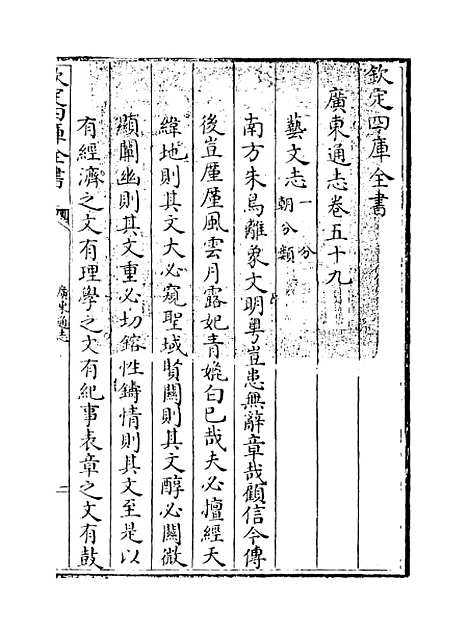 欽定四庫全書
廣東通志卷五十九
藝文志一 分朝分類
南方朱鳥離象文明粤豈患無辭章哉顧信今傳
後豈厪厪風雲月露妃青媲白已哉夫必擅經天
緯地則其文大必窺聖域賢關則其文醇必闡微
顯闡幽則其文重必切鎔性鑄情則其文至是以
有經濟之文有理學之文有紀事表章之文有鼓
欽定四庫全書
廣東通志